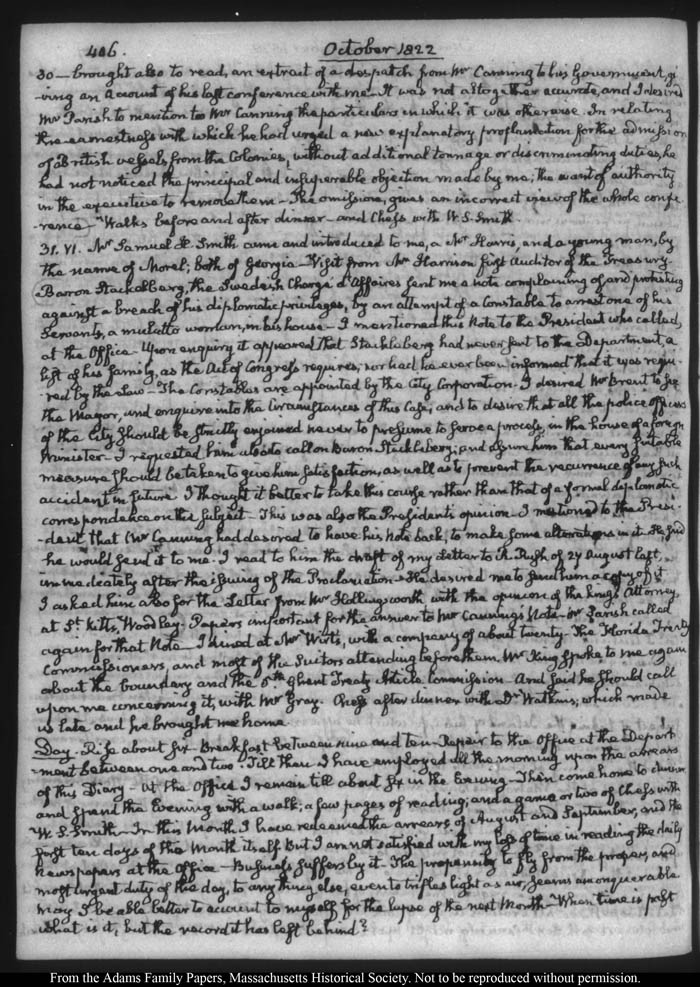 406. October 1822
30 — brought also to read, an extract of a despatch from Mr Canning to his Government, gi
-ving an account of his last conference with me — It was not altogether accurate, and I desired
Mr Parish to mention to Mr Canning the particulars in which it was otherwise. In relating
the earnestness with which he had urged a new explanatory proclamation for the admission
of British vessels from the Colonies, without additional tonnage or discriminating duties, he
had not noticed the principal and insuperable objection made by me; the want of authority
in the executive to remove them — The omission, gives an incorrect view of the whole confe
-rence — Walks before and after dinner — and Chess with W. S. Smith.
31. VI. Mr Samuel H. Smith came and introduced to me, a Mr Harris, and a young man, by
the name of Morel; both of Georgia — Visit from Mr Harrison first Auditor of the Treasury
Baron Stackelberg, the Swedish Chargé d'Affaires sent me a note complaining of and protesting
against a breach of his diplomatic privileges, by an attempt of a Constable to arrest one of his
Servants, a mulatto woman, in his house — I mentioned this Note to the President who called,
at the Office — Upon enquiry it appeared that Stackelberg had never sent to the Department, a
list of his family, as the Act of Congress requires; nor had he ever been informed that it was requi
-red by the Law — The Constables are appointed by the City Corporation. I desired Mr Brent to see
the Mayor, and enquire into the Circumstances of this Case, and to desire that all the police officers
of the City should be strictly enjoined never to presume to serve a process, in the house of a foreign
Minister — I requested him also to call on Baron Stackelberg; and assure him that every suitable
measure should be taken to give him satisfaction, as well as to prevent the recurrence of any such
accident in future. I thought it better to take this course rather than that of a formal diplomatic
correspondence on the subject — This was also the President's opinion — I mentioned to the Presi-
-dent that Mr Canning had desired to have his Note back, to make some alterations in it. He said
he would send it to me. I read to him the draft of my Letter to R. Rush of 27 August last,
immediately after the issuing of the Proclamation. He desired me to send him a copy of it
I asked him also for the Letter from Mr Hollingsworth with the opinion of the king's Attorney,
at St. Kitts, Woodley. Papers important for the answer to Mr Canning's Note — Mr Parish called
again for that Note — I dined at Mr Wirt's, with a company of about twenty — The Florida Treaty
Commissioners, and most of the Suitors attending before them. Mr King spoke to me again
about the boundary and the 5th Ghent Treaty Article Commission — And said he should call
upon me concerning it, with Mr Gray. Chess after dinner with Dr Watkins; which made
us late and he brought me home.
Day. Rise about six — Breakfast between nine and ten — Repair to the Office at the Depart
-ment between one and two — Till then I have employed all the morning upon the arrears
of this Diary — At the Office I remain till about six in the Evening — Then come home to dinner
and spend the Evening with a walk; a few pages of reading; and a game or two of Chess with
W. S. Smith — In this Month I have redeemed the arrears of August and September, and the
first ten days of the Month itself. But I am not satisfied with my loss of time in reading the daily
newspapers at the office — Business suffers by it. The propensity to fly from the proper, and
most urgent duty of the day, to any thing else, even to trifles light as air, seems unconquerable.
May I be able better to account to myself for the lapse of the next Month — When time is past
what is it, but the record it has left behind?
From the Adams Family Papers, Massachusetts Historical Society. Not to be reproduced without permission.